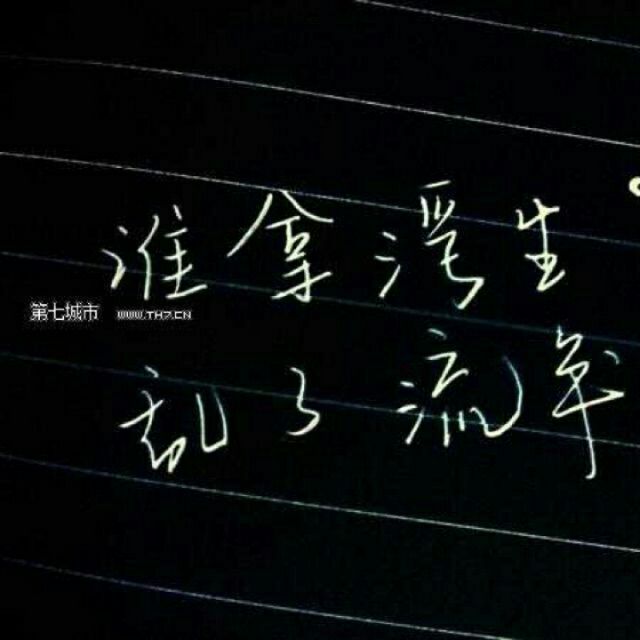 谁拿浮生
第七城市 WWW.TH7.CN
却了流年